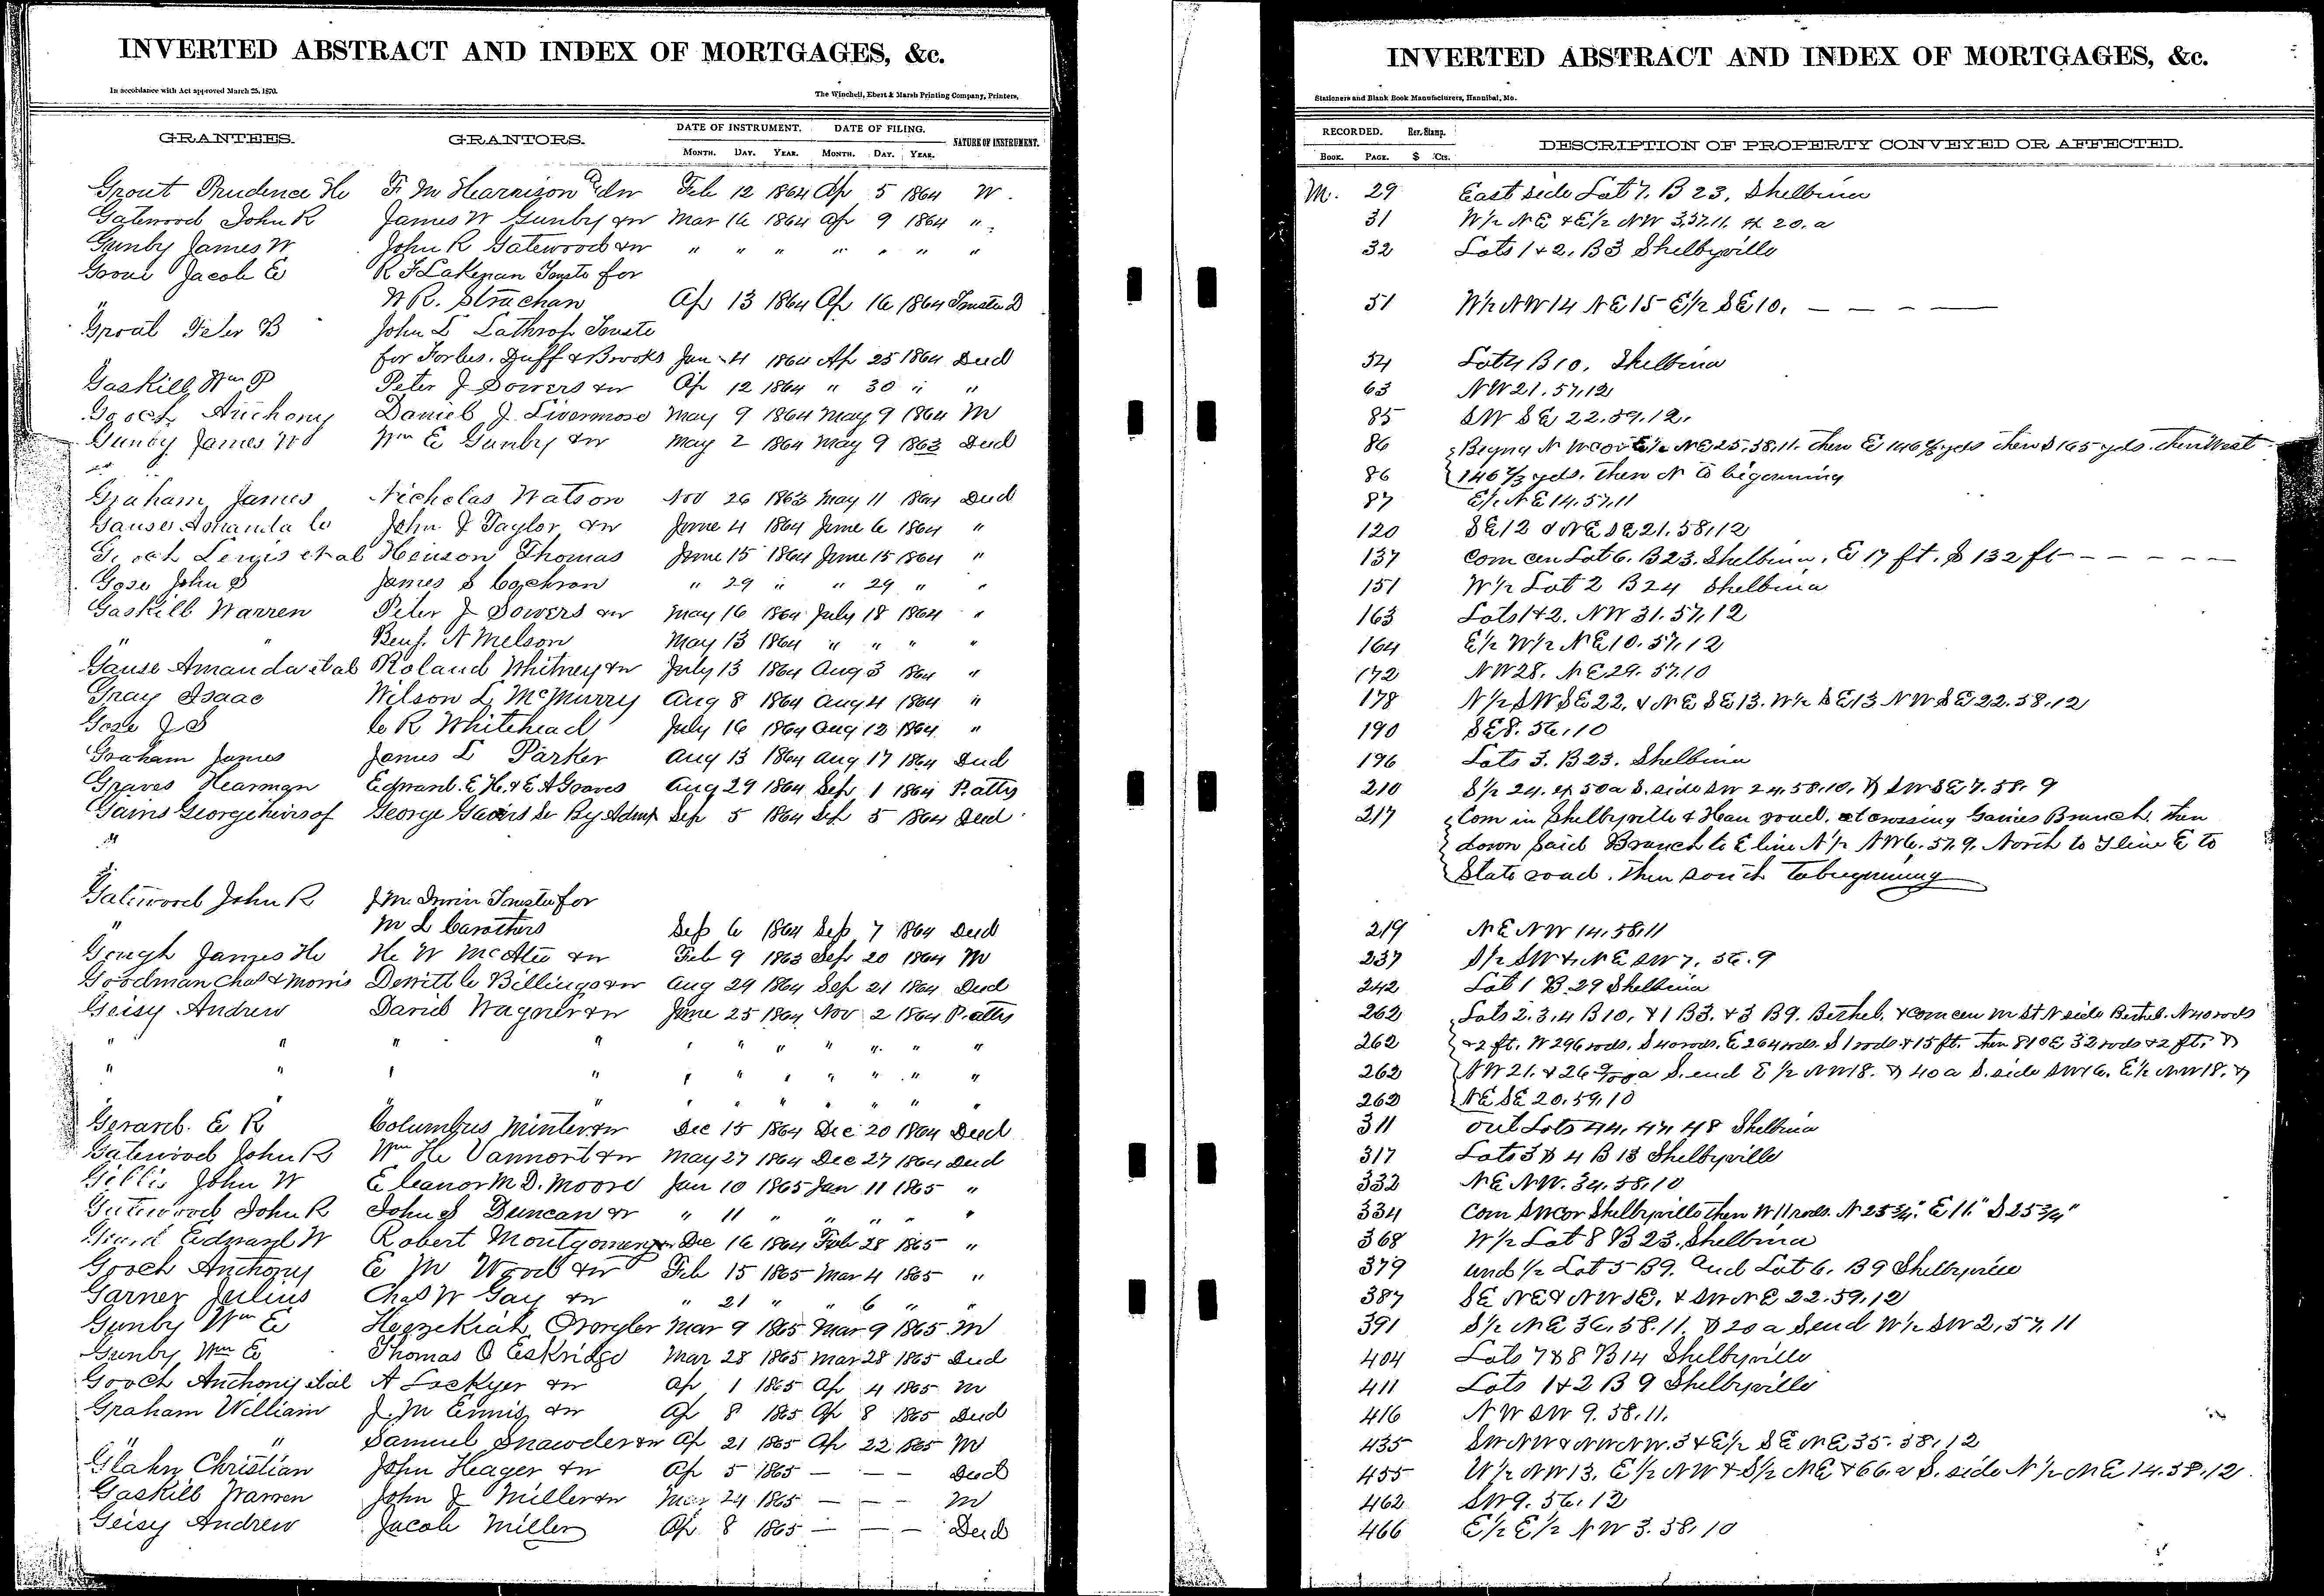 INVERTED ABSTRACT AND INDEX OF MORTGAGES, &c.
In accordance with Act approved March 25, 1870.
The Winchell, Ebert & Marsh Printing Company, Printers,
GRANTEES. GRANTORS. DATE OF INSTRUMENT. DATE OF FILING. NATURE OF INSTRUMENT.
MONTH. DAY. YEAR. MONTH. DAY. YEAR.
Grout Prudence H F. M Harrison & w Feb 12 1864 Ap 5 1864 W.
Gatewood John R James W Gunby & w Mar 16 1864 Ap 9 1864 "
Gunby James W John R Gatewood & w " " " " " " "
Jacob E R F Lakenan Truste for
W R. Strachan Ap 13 1864 Ap 16 1864 Trustee D
Groat Peter B John L Lathrop Truste
for Forbes, Duff & Brooks Jan 4 1864 Ap 25 1864 Deed
Gaskill Wm P Peter J Sowers & w Ap 12 1864 " 30 " "
Gooch Anthony Daniel J. Livermore May 9 1864 May 9 1864 M
Gunby James W Wm E Gunby & w May 2 1864 May 9 1863 Deed
"
Graham James Nicholas Watson Nov 26 1863 May 11 1864 Deed
Gause Amanda C John J Taylor & w June 4 1864 June 6 1864 "
Gooch Lewis et al Henson Thomas June 15 1864 June 15 1864 "
Gose John S James S Cochron " 29 " " 29 " "
Gaskill Warren Peter J Sowers & w May 16 1864 July 18 1864 "
" " Benj. N Melson May 13 1864 " " " "
Gause Amanda et al Roland Whitney & w July 13 1864 Aug 3 1864 "
Gray Isaac Wilson L McMurry Aug 8 1864 Aug 4 1864 "
Gose J S C R Whitehead July 16 1864 Aug 12 1864 "
Graham James James L Parker Aug 13 1864 Aug 17 1864 Deed
Graves Hearman Edward. E H. & E A Graves Aug 29 1864 Sep 1 1864 P. atty
Gains George heirs of George Gains Sr By Admr Sep 5 1864 Sep 5 1864 Deed
"
"
Gatewood John R J M. Irwin Trustee for
" M L Carothers Sep 6 1864 Sep 7 1864 Deed
Gough James H H. W McAtee & w Feb 9 1863 Sep 20 1864 M
Goodman Chas & Morris Dewitt C Billings & w Aug 29 1864 Sep 21 1864 Deed
Geisy Andrew David Wagner & w June 25 1864 Nov 2 1864 P. atty
" " " " " " " " " " "
" " " " " " " " " " "
" " " " " " " "
Gerard. E R Columbus Minter & w Dec 15 1864 Dec 20 1864 Deed
Gatewood John R Wm H. Vannort & w May 27 1864 Dec 27 1864 Deed
Gillis John W Eleanor M D. Moore Jan 10 1865 Jan 11 1865 "
Gatewood John R John S Duncan & w " 11 " " " " "
Edward W Robert Montgomery & w Dec 16 1864 Feb 28 1865 "
Gooch Anthony E M Wood & w Feb 15 1865 Mar 4 1865 "
Garner Julius Chas W Gay & w " 21 " " 6 " "
Gunby Wm E Hezekiah Mar 9 1865 Mar 9 1865 M
Gunby Wm E Thomas O Eskridge Mar 28 1865 Mar 28 1865 Deed
Gooch Anthony et al A Lockyer & w Ap 1 1865 Ap 4 1865 M
Graham William J. M Ennis & w Ap 8 1865 Ap 8 1865 Deed
" " Samuel Snawder & w Ap 21 1865 Ap 22 1865 M
Glahn Christian John Heager & w Ap 5 1865 — — — Deed
Gaskill Warren John J Miller & w Mar 24 1865 — — — M
Geisy Andrew Jacob Miller Ap 8 1865 — — — Deed
INVERTED ABSTRACT AND INDEX OF MORTGAGES, &c.
Stationers and Blank Book Manufacturers, Hannibal, Mo.
RECORDED. Rev. Stamp. DESCRIPTION OF PROPERTY CONVEYED OR AFFECTED.
BOOK. PAGE. $ Cts.
M. 29 East side Lot 7. B 23, Shelbina
31 W½ NE & E½ NW 3,57,11. 20. a
32 Lots 1 & 2, B3 Shelbyville
51 W½ NW 14 NE 15 E½ SE 10, — — — —
54 Lot 4 B 10, Shelbina
63 NW 21. 57,12
85 SW SE 22.59.12.
86 Beging N W cor E½ NE 25,58,11. then E 146⅔ yds then S 165 yds. then West
86 146⅔ yds, then N to beginning
87 E½ NE 14.57,11
120 SE 12 & NE SE 21. 58,12
137 com cen Lot 6. B 23. Shelbina, E 17 ft. S 132 ft — — — — —
151 W½ Lot 2 B 24 Shelbina
163 Lots 1 & 2. NW 31. 57,12
164 E½ W½ NE 10. 57,12
172 NW 28. NE 29. 57,10
178 N½ SW SE 22, & NE SE 13. W½ SE 13 NW SE 22.58,12
190 SE 8. 56,10
196 Lots 3. B 23. Shelbina
210 S½ 24. ex 50 a S. side SW 24.58.10, & SW SE 7.58. 9
217 Com in Shelbyville & Han road. at crossing Gaines Branch. then
down said Branch to E line N½ NW 6. 57.9, North to T line E to
State road. Then south to beginning
219 NE NW 14,58,11
237 S½ SW & NE SW 7, 56.9
242 Lot 1 B 29 Shelbina
262 Lots 2.3,4 B 10, & 1 B3. & 3 B9. Bethel, & com cen M St N side Bethel. N 40 rods
262 & 2 ft. W 296 rods. S 40 rods. E 264 rods. S 1 rods & 15 ft. then S 10 E 32 rods & 2 ft. &
262 NW 21. & 26 a S. end E½ NW 18. & 40 a S. side SW 6. E½ NW 18. &
262 NE SE 20.59,10
311 out Lots 44, 47, 48 Shelbina
317 Lots 3 & 4 B 13 Shelbyville
332 NE NW. 34.58,10
334 Com SW cor Shelbyville then W 11 rods. N 25¾" E 11" S 25¾"
368 W½ Lot 8 B 23. Shelbina
379 und ½ Lot 5 B 9. and Lot 6. B 9 Shelbyville
387 SE NE & NW SE, & SW NE 22.59,12
391 S½ NE 36,58.11. & 20 a S end W½ SW 2, 57, 11
404 Lots 7 & 8 B 14 Shelbyville
411 Lots 1 & 2 B 9 Shelbyville
416 NW SW 9. 58.11.
435 SW NW & NW NW. 3 & E½ SE NE 35. 58,12
455 W½ NW 13. E½ NW & S½ NE & 66. a S. side N½ NE 14.58.12
462 SW 9. 56,12
466 E½ E½ NW 3. 58,10